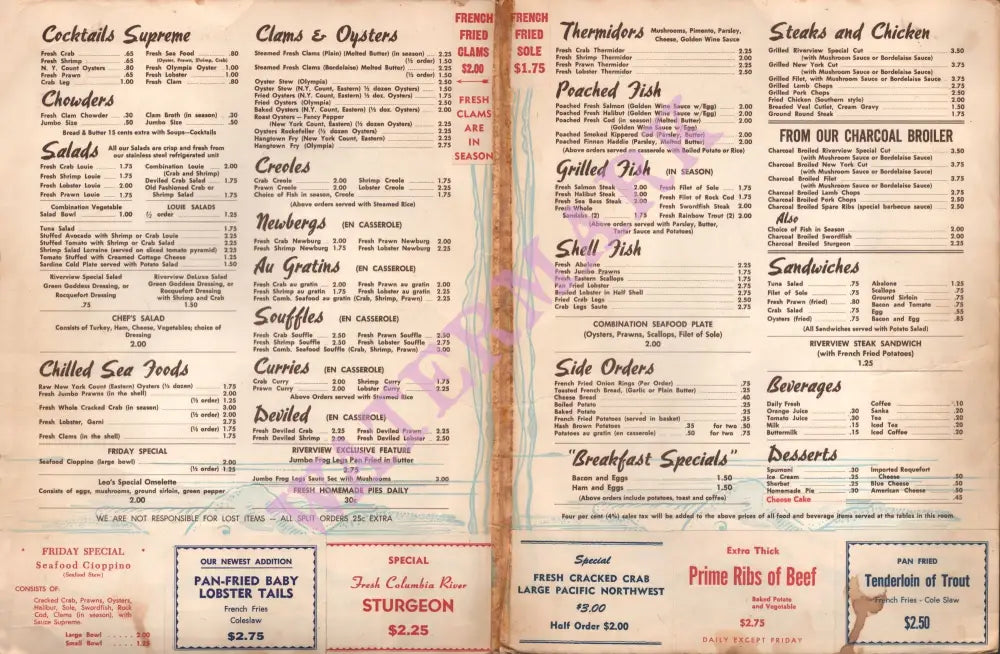 Cocktails Supreme
Fresh Crab .65 Fresh Sea Food .80
Fresh Shrimp .65 (Oyster, Prawn, Shrimp, Crab)
N. Y. Count Oysters .80 Fresh Olympia Oyster 1.00
Fresh Prawn .65 Fresh Lobster 1.00
Crab Leg 1.00 Fresh Clam .80
Chowders
Fresh Clam Chowder .30 Clam Broth (in season) .30
Jumbo Size .50 Jumbo Size .50
Bread & Butter 15 cents extra with Soups—Cocktails
Salads
All our Salads are crisp and fresh from
our stainless steel refrigerated unit
Fresh Crab Louie 1.75 Combination Louie 2.00
(Crab and Shrimp)
Fresh Shrimp Louie 1.75 Deviled Crab Salad 1.75
Fresh Lobster Louie 2.00 Old Fashioned Crab or
Fresh Prawn Louie 1.75 Shrimp Salad 1.75
Combination Vegetable LOUIE SALADS
Salad Bowl 1.00 ½ order 1.25
Tuna Salad 1.75
Stuffed Avocado with Shrimp or Crab Louie 2.25
Stuffed Tomato with Shrimp or Crab Salad 2.25
Shrimp Salad Lorraine (served on sliced tomato pyramid) 2.25
Tomato Stuffed with Creamed Cottage Cheese 1.25
Sardine Cold Plate served with Potato Salad 1.50
Riverview Special Salad Riverview DeLuxe Salad
Green Goddess Dressing, or Green Goddess Dressing, or
Rocquefort Dressing Rocquefort Dressing
with Shrimp and Crab
.75 1.50
CHEF'S SALAD
Consists of Turkey, Ham, Cheese, Vegetables; choice of
Dressing
2.00
Chilled Sea Foods
Raw New York Count (Eastern) Oysters (½ dozen) 1.75
Fresh Jumbo Prawns (in the shell) 2.00
(½ order) 1.25
Fresh Whole Cracked Crab (in season) 3.00
(½ order) 2.00
Fresh Lobster, Garni 2.75
(½ order) 1.75
Fresh Clams (in the shell) 1.75
FRIDAY SPECIAL
Seafood Cioppino (large bowl) 2.00
(½ order) 1.25
Leo's Special Omelette
Consists of eggs, mushrooms, ground sirloin, green pepper
2.00
Clams & Oysters
Steamed Fresh Clams (Plain) (Melted Butter) (in season) 2.25
(½ order) 1.50
Steamed Fresh Clams (Bordelaise) Melted Butter) 2.25
(½ order) 1.50
Oyster Stew (Olympia) 2.50
Oyster Stew (N.Y. Count, Eastern) ½ dozen Oysters) 1.50
Fried Oysters (N.Y. Count, Eastern) ½ doz. Oysters) 1.75
Fried Oysters (Olympia) 2.50
Baked Oysters (N.Y. Count, Eastern) (½ doz. Oysters) 2.00
Roast Oysters—Fancy Pepper
(New York Count, Eastern) (½ dozen Oysters) 2.25
Oysters Rockafeller (½ dozen Oysters) 2.25
Hangtown Fry (New York Count, Eastern) 2.25
Hangtown Fry (Olympia) 2.75
Creoles
Crab Creole 2.00 Shrimp Creole 1.75
Prawn Creole 2.00 Lobster Creole 2.25
Choice of Fish in season, Creole 1.75
(Above orders served with Steamed Rice)
Newbergs (EN CASSEROLE)
Fresh Crab Newburg 2.00 Fresh Prawn Newburg 2.00
Fresh Shrimp Newburg 1.75 Fresh Lobster Newburg 2.25
Au Gratins (EN CASSEROLE)
Fresh Crab au gratin 2.00 Fresh Prawn au gratin 2.00
Fresh Shrimp au gratin 1.75 Fresh Lobster au gratin 2.25
Fresh Comb. Seafood au gratin (Crab, Shrimp, Prawn) 2.25
Souffles (EN CASSEROLE)
Fresh Crab Souffle 2.50 Fresh Prawn Souffle 2.50
Fresh Shrimp Souffle 2.50 Fresh Lobster Souffle 2.75
Fresh Comb. Seafood Souffle (Crab, Shrimp, Prawn)
Curries (EN CASSEROLE)
Crab Curry 2.00 Shrimp Curry 1.75
Prawn Curry 2.00 Lobster Curry 2.25
Above Orders Served with Steamed Rice
Deviled (EN CASSEROLE)
Fresh Deviled Crab 2.25 Fresh Deviled Prawn 2.25
Fresh Deviled Shrimp 2.00 Fresh Deviled Lobster 2.50
RIVERVIEW EXCLUSIVE FEATURE
Jumbo Frog Legs Pan Fried in Butter
2.75
Jumbo Frog Legs Saute Sec with Mushrooms 3.00
FRESH HOMEMADE PIES DAILY
30c
WE ARE NOT RESPONSIBLE FOR LOST ITEMS — ALL SPLIT ORDERS 25c EXTRA
FRENCH
FRIED
CLAMS
$2.00
FRESH
CLAMS
ARE
IN
SEASON
FRENCH
FRIED
SOLE
$1.75
Thermidors
Mushrooms, Pimento, Parsley,
Cheese, Golden Wine Sauce
Fresh Crab Thermidor 2.25
Fresh Shrimp Thermidor 2.00
Fresh Prawn Thermidor 2.25
Fresh Lobster Thermidor 2.50
Poached Fish
Poached Fresh Salmon (Golden Wine Sauce w/Egg) 2.00
Poached Fresh Halibut (Golden Wine Sauce w/Egg) 2.00
Poached Fresh Cod (in season) (Melted Butter) 2.00
(Golden Wine Sauce w/Egg)
Poached Smoked Kippered Cod (Parsley, Butter) 2.00
Poached Finnan Haddie (Parsley, Melted Butter) 2.00
(Above orders served en casserole with Boiled Potato or Rice)
Grilled Fish (IN SEASON)
Fresh Salmon Steak 2.00 Fresh Filet of Sole 1.75
Fresh Halibut Steak 2.00 Fresh Filet of Rock Cod 1.75
Fresh Sea Bass Steak 2.00 Fresh Swordfish Steak 2.00
Fresh Whole
Sandabs (2) 1.75 Fresh Rainbow Trout (2) 2.00
(Above orders served with Parsley, Butter,
Tartar Sauce and Potatoes)
Shell Fish
Fresh Abalone 2.25
Fresh Jumbo Prawns 1.75
Fresh Eastern Scallops 1.75
Pan Fried Lobster 2.75
Broiled Lobster in Half Shell 2.75
Fried Crab Legs 2.50
Crab Legs Saute 2.75
COMBINATION SEAFOOD PLATE
(Oysters, Prawns, Scallops, Filet of Sole)
2.00
Side Orders
French Fried Onion Rings (Per Order) .75
Toasted French Bread, (Garlic or Plain Butter) .25
Cheese Bread .40
Boiled Potato .25
Baked Potato .25
French Fried Potatoes (served in basket) .35
Hash Brown Potatoes .35 for two .50
Potatoes au gratin (en casserole) .50 for two .75
"Breakfast Specials"
Bacon and Eggs 1.50
Ham and Eggs 1.50
(Above orders include potatoes, toast and coffee)
Steaks and Chicken
Grilled Riverview Special Cut 3.50
(with Mushroom Sauce or Bordelaise Sauce)
Grilled New York Cut 3.75
(with Mushroom Sauce or Bordelaise Sauce)
Grilled Filet, with Mushroom Sauce or Bordelaise Sauce 3.75
Grilled Lamb Chops 2.75
Grilled Pork Chops 2.50
Fried Chicken (Southern style) 2.00
Breaded Veal Cutlet, Cream Gravy 1.50
Ground Round Steak 1.75
FROM OUR CHARCOAL BROILER
Charcoal Broiled Riverview Special Cut 3.50
(with Mushroom Sauce or Bordelaise Sauce)
Charcoal Broiled New York Cut 3.75
(with Mushroom Sauce or Bordelaise Sauce)
Charcoal Broiled Filet 3.75
(with Mushroom Sauce or Bordelaise Sauce)
Charcoal Broiled Lamb Chops 2.75
Charcoal Broiled Pork Chops 2.50
Charcoal Broiled Spare Ribs (special barbecue sauce) 2.50
Also
Choice of Fish in Season 2.00
Charcoal Broiled Swordfish 2.00
Charcoal Broiled Sturgeon 2.25
Sandwiches
Tuna Salad .75 Abalone 1.25
Filet of Sole .75 Scallops .75
Fresh Prawn (fried) .80 Ground Sirloin .75
Crab Salad .75 Bacon and Tomato .75
Oysters (fried) .75 Egg .55
Bacon and Egg .85
(All Sandwiches served with Potato Salad)
RIVERVIEW STEAK SANDWICH
(with French Fried Potatoes)
1.25
Beverages
Daily Fresh Coffee .10
Orange Juice .30 Sanka .20
Tomato Juice .30 Tea .20
Milk .15 Iced Tea .20
Buttermilk .15 Iced Coffee .20
Desserts
Spumoni .30 Imported Roquefort
Ice Cream .25 Cheese .50
Sherbet .25 Blue Cheese .50
Homemade Pie .30 American Cheese .50
Cheese Cake .45
Four per cent (4%) sales tax will be added to the above prices of all food and beverage items served at the tables in this room.
FRIDAY SPECIAL
Seafood Cioppino
(Seafood Stew)
CONSISTS OF:
Cracked Crab, Prawns, Oysters,
Halibut, Sole, Swordfish, Rock
Cod, Clams (in season), with
Sauce Supreme.
Large Bowl 2.00
Small Bowl 1.25
OUR NEWEST ADDITION
PAN-FRIED BABY
LOBSTER TAILS
French Fries
Coleslaw
$2.75
SPECIAL
Fresh Columbia River
STURGEON
$2.25
Special
FRESH CRACKED CRAB
LARGE PACIFIC NORTHWEST
$3.00
Half Order $2.00
Extra Thick
Prime Ribs of Beef
Baked Potato
and Vegetable
$2.75
DAILY EXCEPT FRIDAY
PAN FRIED
Tenderloin of Trout
French Fries - Cole Slaw
$2.50
WATERMARK